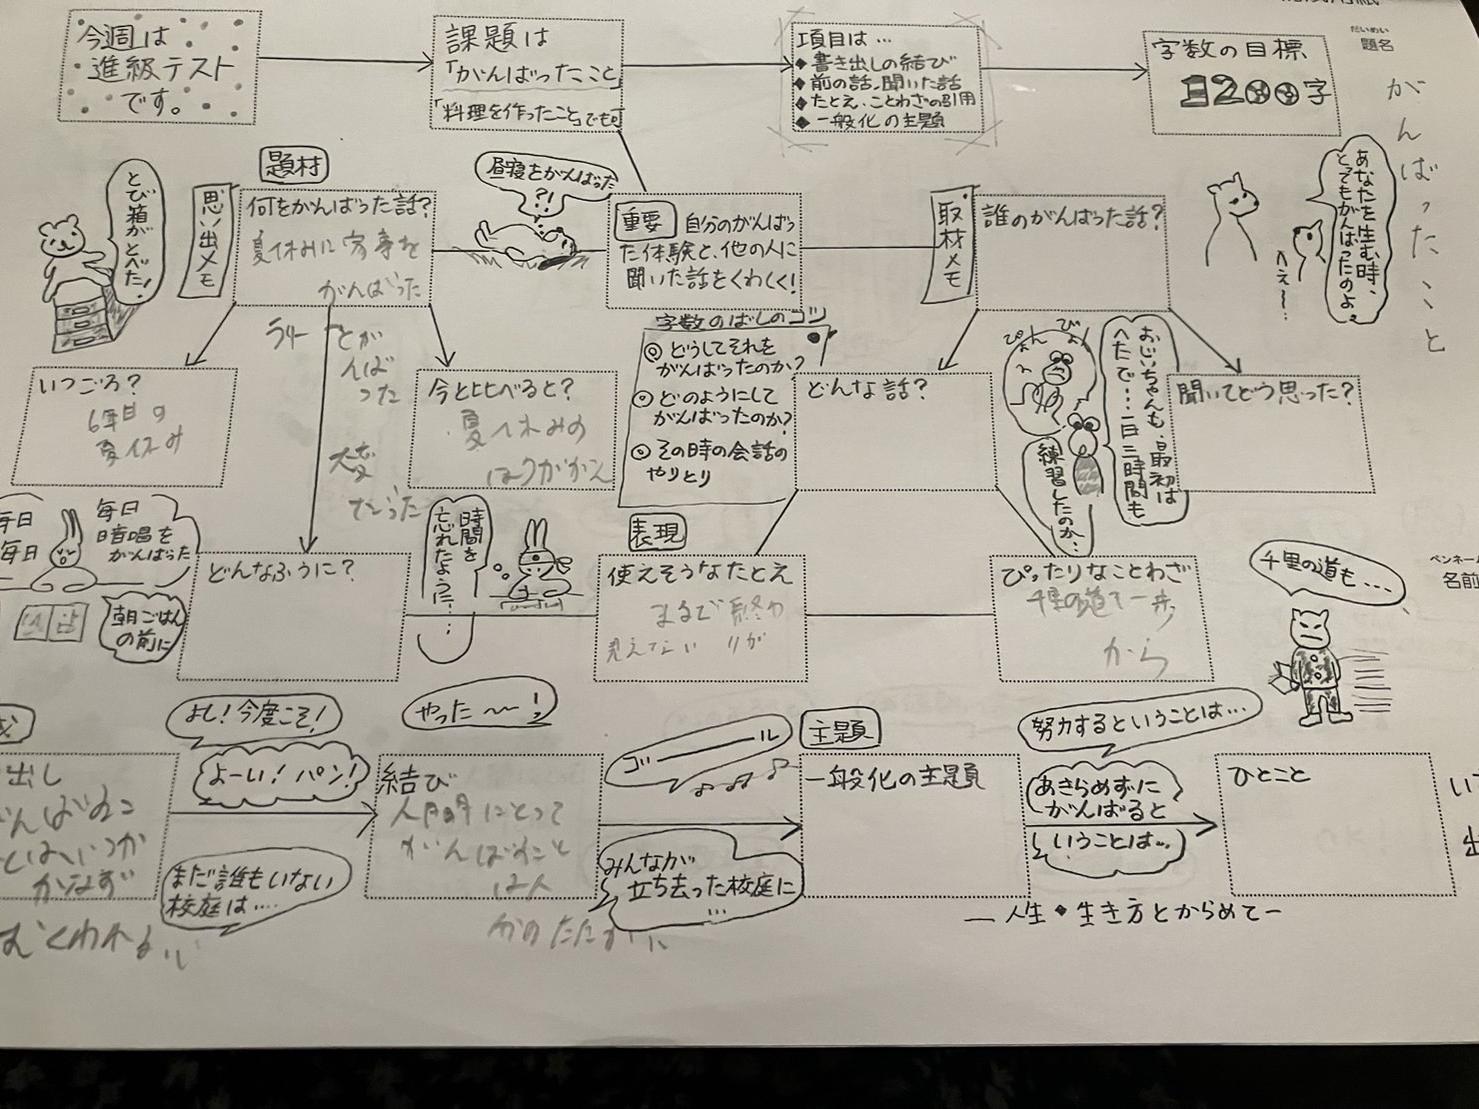 今週は
進級テスト
です。
課題は
「がんばったこと」
「料理を作ったこと」でも可
項目は…
◆書き出しの結び
◆前の話,聞いた話
◆たとえ,ことわざの引用
◆一般化の主題
字数の目標
1200字
だいめい
題名
がんばったこと
とび箱がとべた!
思い出メモ
題材
何をがんばった話?
夏休みに家事を
がんばった
昼寝をがんばった
?!
重要 自分のがんばっ
た体験と、他の人に
聞いた話をくわしく!
取材メモ
誰のがんばった話?
あなたを生む時、
とてもがんばったのよ。
へぇ〜…
いつごろ?
6年目の
夏休み
がんば
った
大変
だった
今と比べると?
夏休みの
ほうが
字数のばしのコツ
◎どうしてそれを
がんばったのか?
◎どのようにして
がんばったのか?
◎その時の会話の
やりとり
どんな話?
ぴょん
ぴょん
おじいちゃんも、最初は
へたで…一日三時間も
練習したのか…
聞いてどう思った?
毎日
毎日
毎日
暗唱を
がんばった
朝ごはん
の前に
どんなふうに?
時間を
忘れたように…
表現
使えそうなたとえ
まるで終わ
りが
見えてない
ぴったりなことわざ
千里の道も一歩
から
千里の道も…
ペンネーム
名前
よし!今度こそ!
よーい!パン!
まだ誰もいない
校庭は…
出し
がんばること
はいつか
かならず
むくわれる
やった〜!
結び
人間にとって
がんばること
は人
ゴール
みんなが
立ち去った校庭に
…
主題
一般化の主題
努力するということは…
あきらめずに
がんばると
いうことは…
ひとこと
―人生◆生き方とからめて―